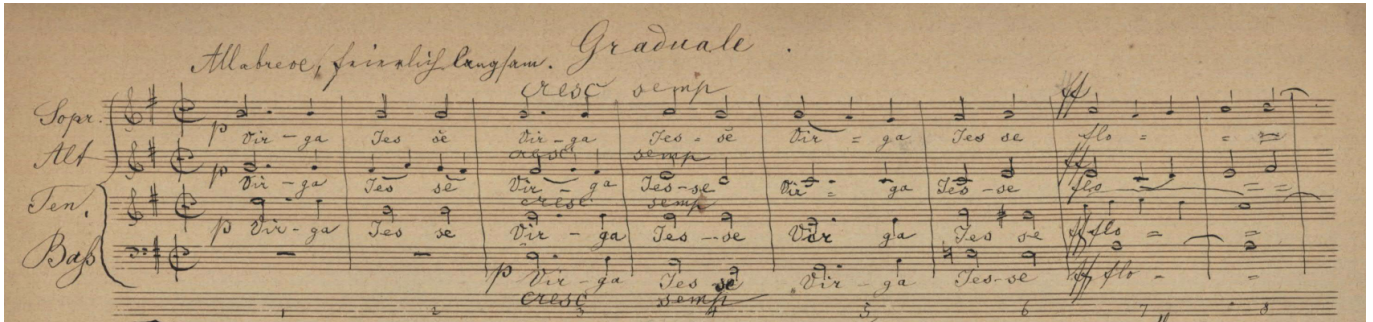 Graduale.
Allabreve, feierlich langsam.
cresc semp
Sopr. ff
p Vir - ga Jes se Vir - ga Jes - se Vir = ga Jes se flo = = =
cresc semp
Alt p ff
Vir - ga Jes se Vir - ga Jes - se Vir = ga Jes - se flo = =
cresc semp
Ten.
p Vir - ga Jes se Vir - ga Jes - se Vir ga Jes se ff flo = =
Baß
p Vir - ga Jes se Vir - ga Jes - se ff flo - =
cresc semp
1 2 3 4 5 6 7 8